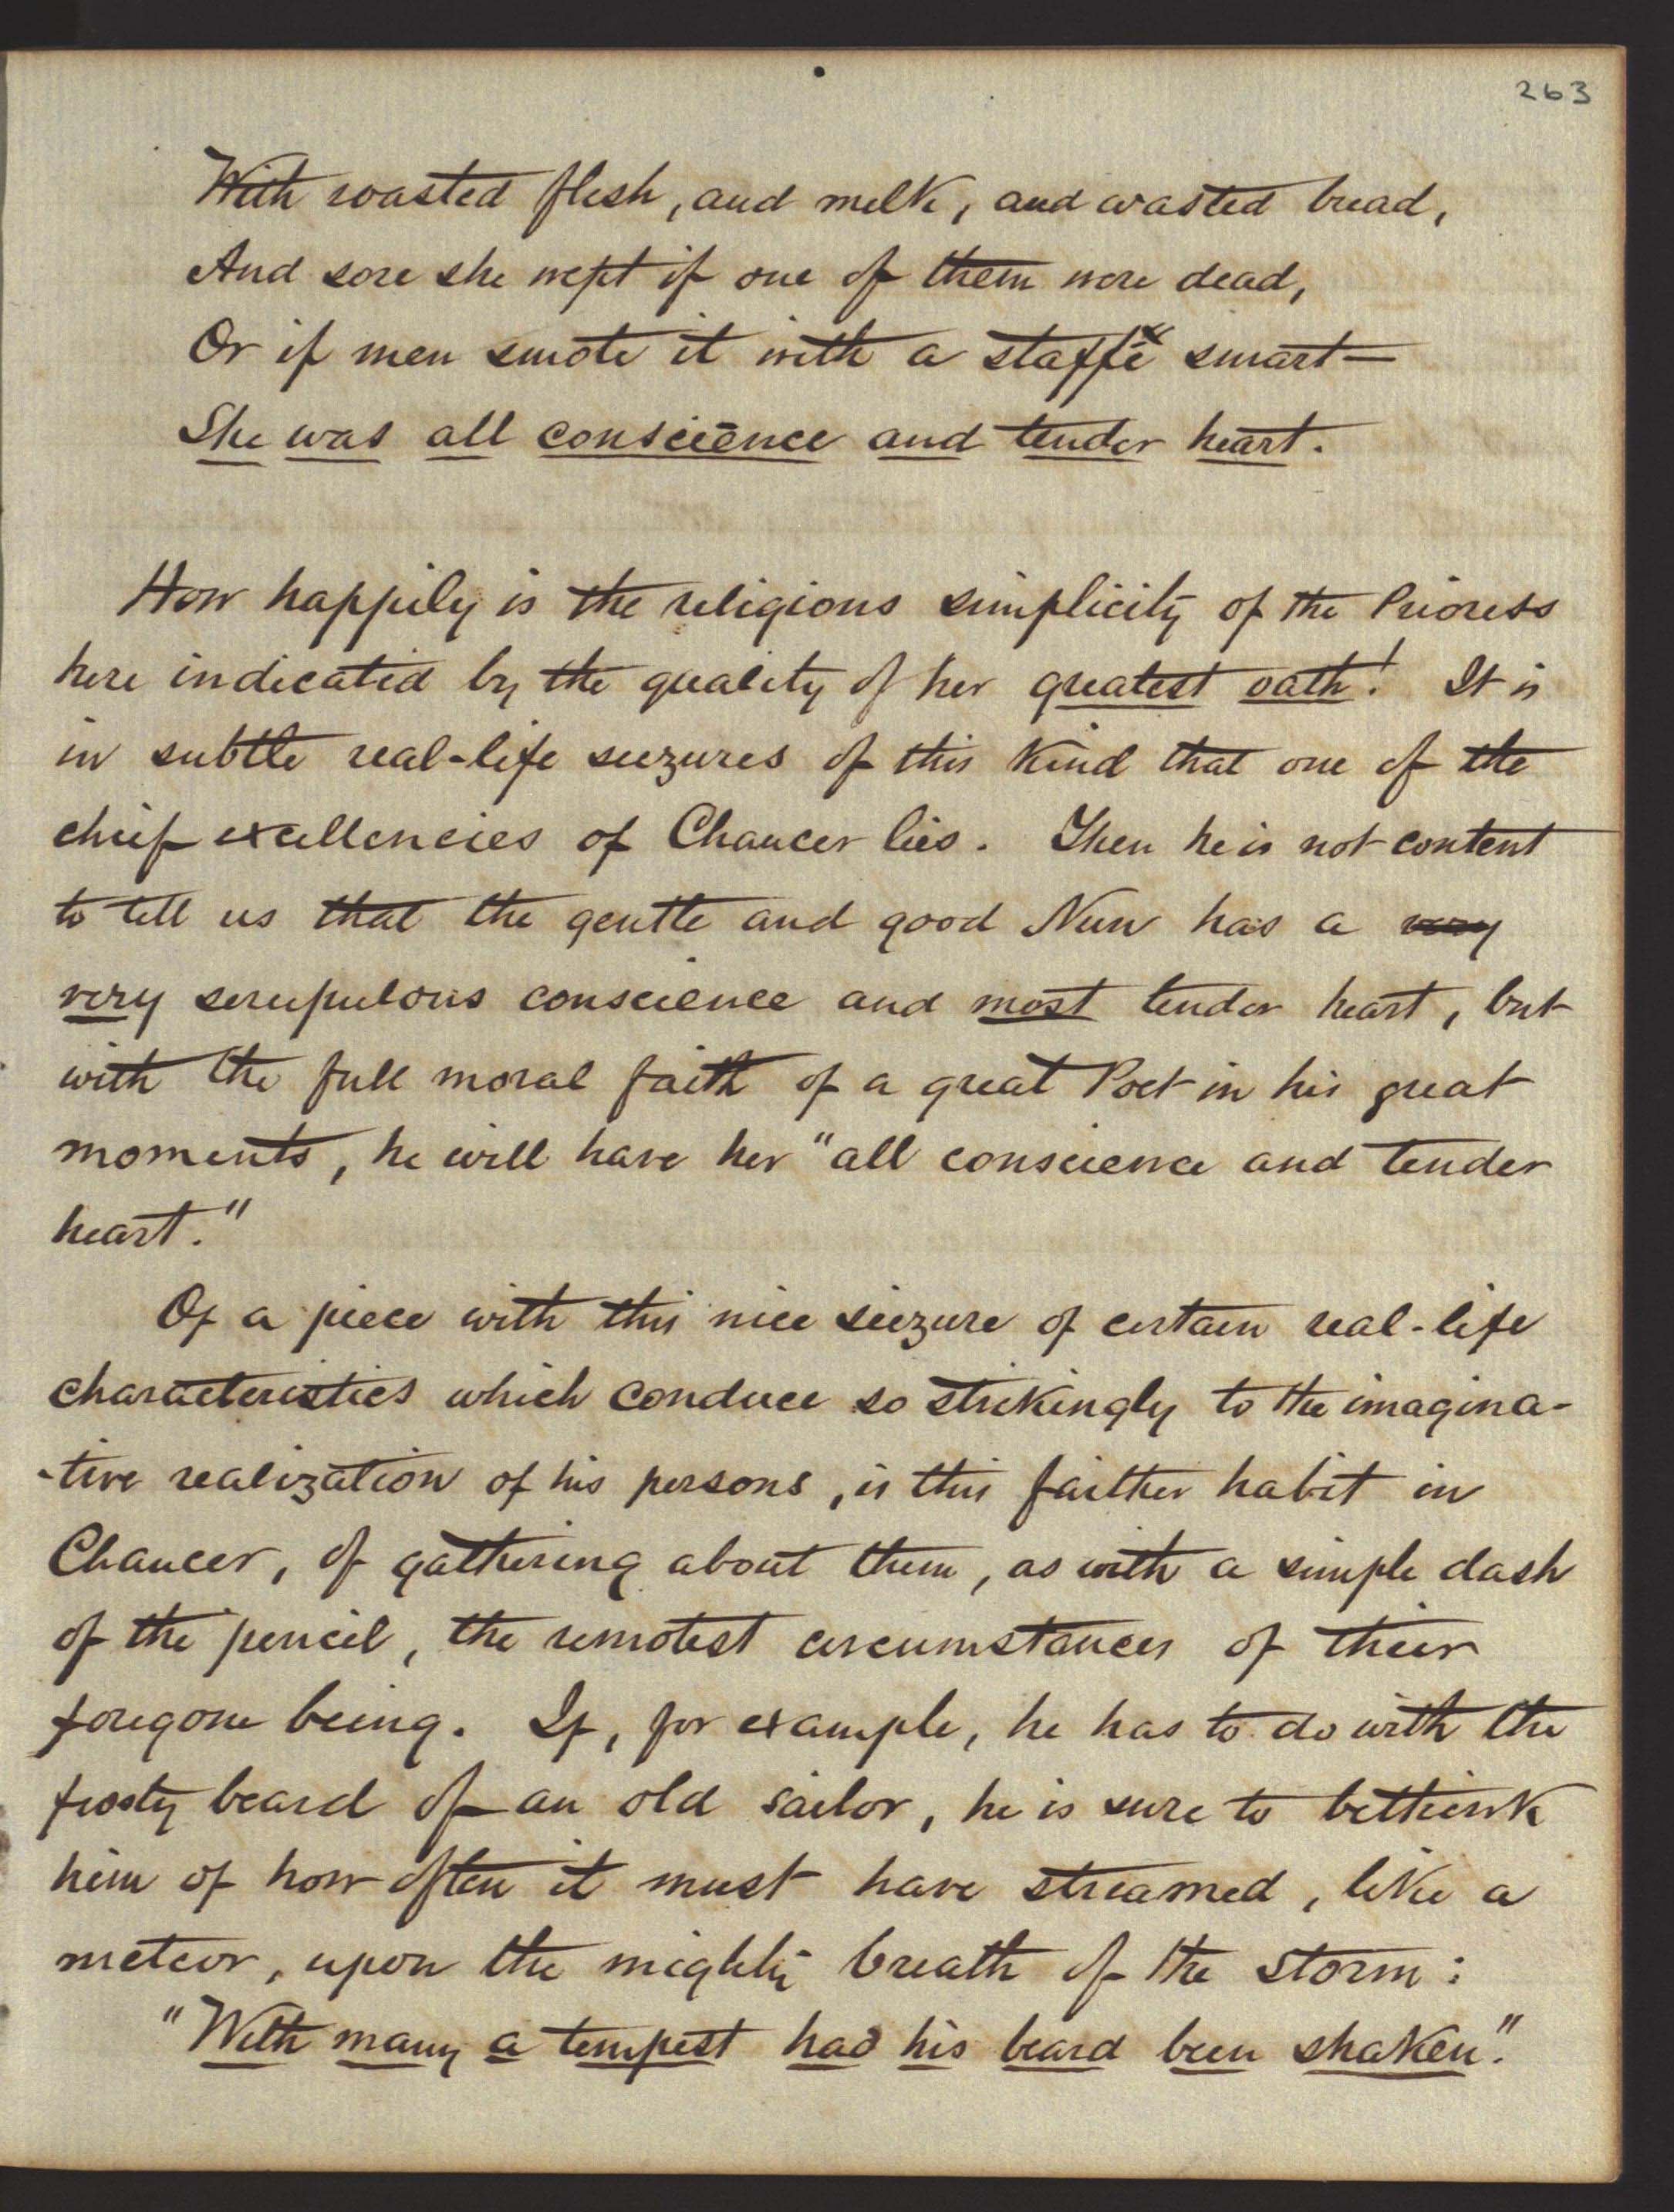 263
With roasted flesh, and melk, and wasted bread,
And sore she wept if one of them were dead,
Or if men smote it with a staffĕ smart—
She was all conscīence and tender heart.
How happily is the religious simplicity of the Prioress
here indicated by the quality of her greatest oath! It is
in subtle real-life seizures of this kind that one of the
chief excellencies of Chaucer lies. Then he is not content
to tell us that the gentle and good Nun has a very
very scrupulous conscience and most tender heart, but
with the full moral faith of a great Poet in his great
moments, he will have her "all conscience and tender
heart."
Of a piece with this nice seizure of certain real-life
characteristics which conduce so strikingly to the imagina-
-tive realization of his persons, is this farther habit in
Chaucer, of gathering about them, as with a simple dash
of the pencil, the remotest circumstances of their
foregone being. If, for example, he has to do with the
frosty beard of an old sailor, he is sure to bethink
him of how often it must have streamed, like a
meteor, upon the mighty breath of the storm:
"With many a tempest had his beard been shaken."